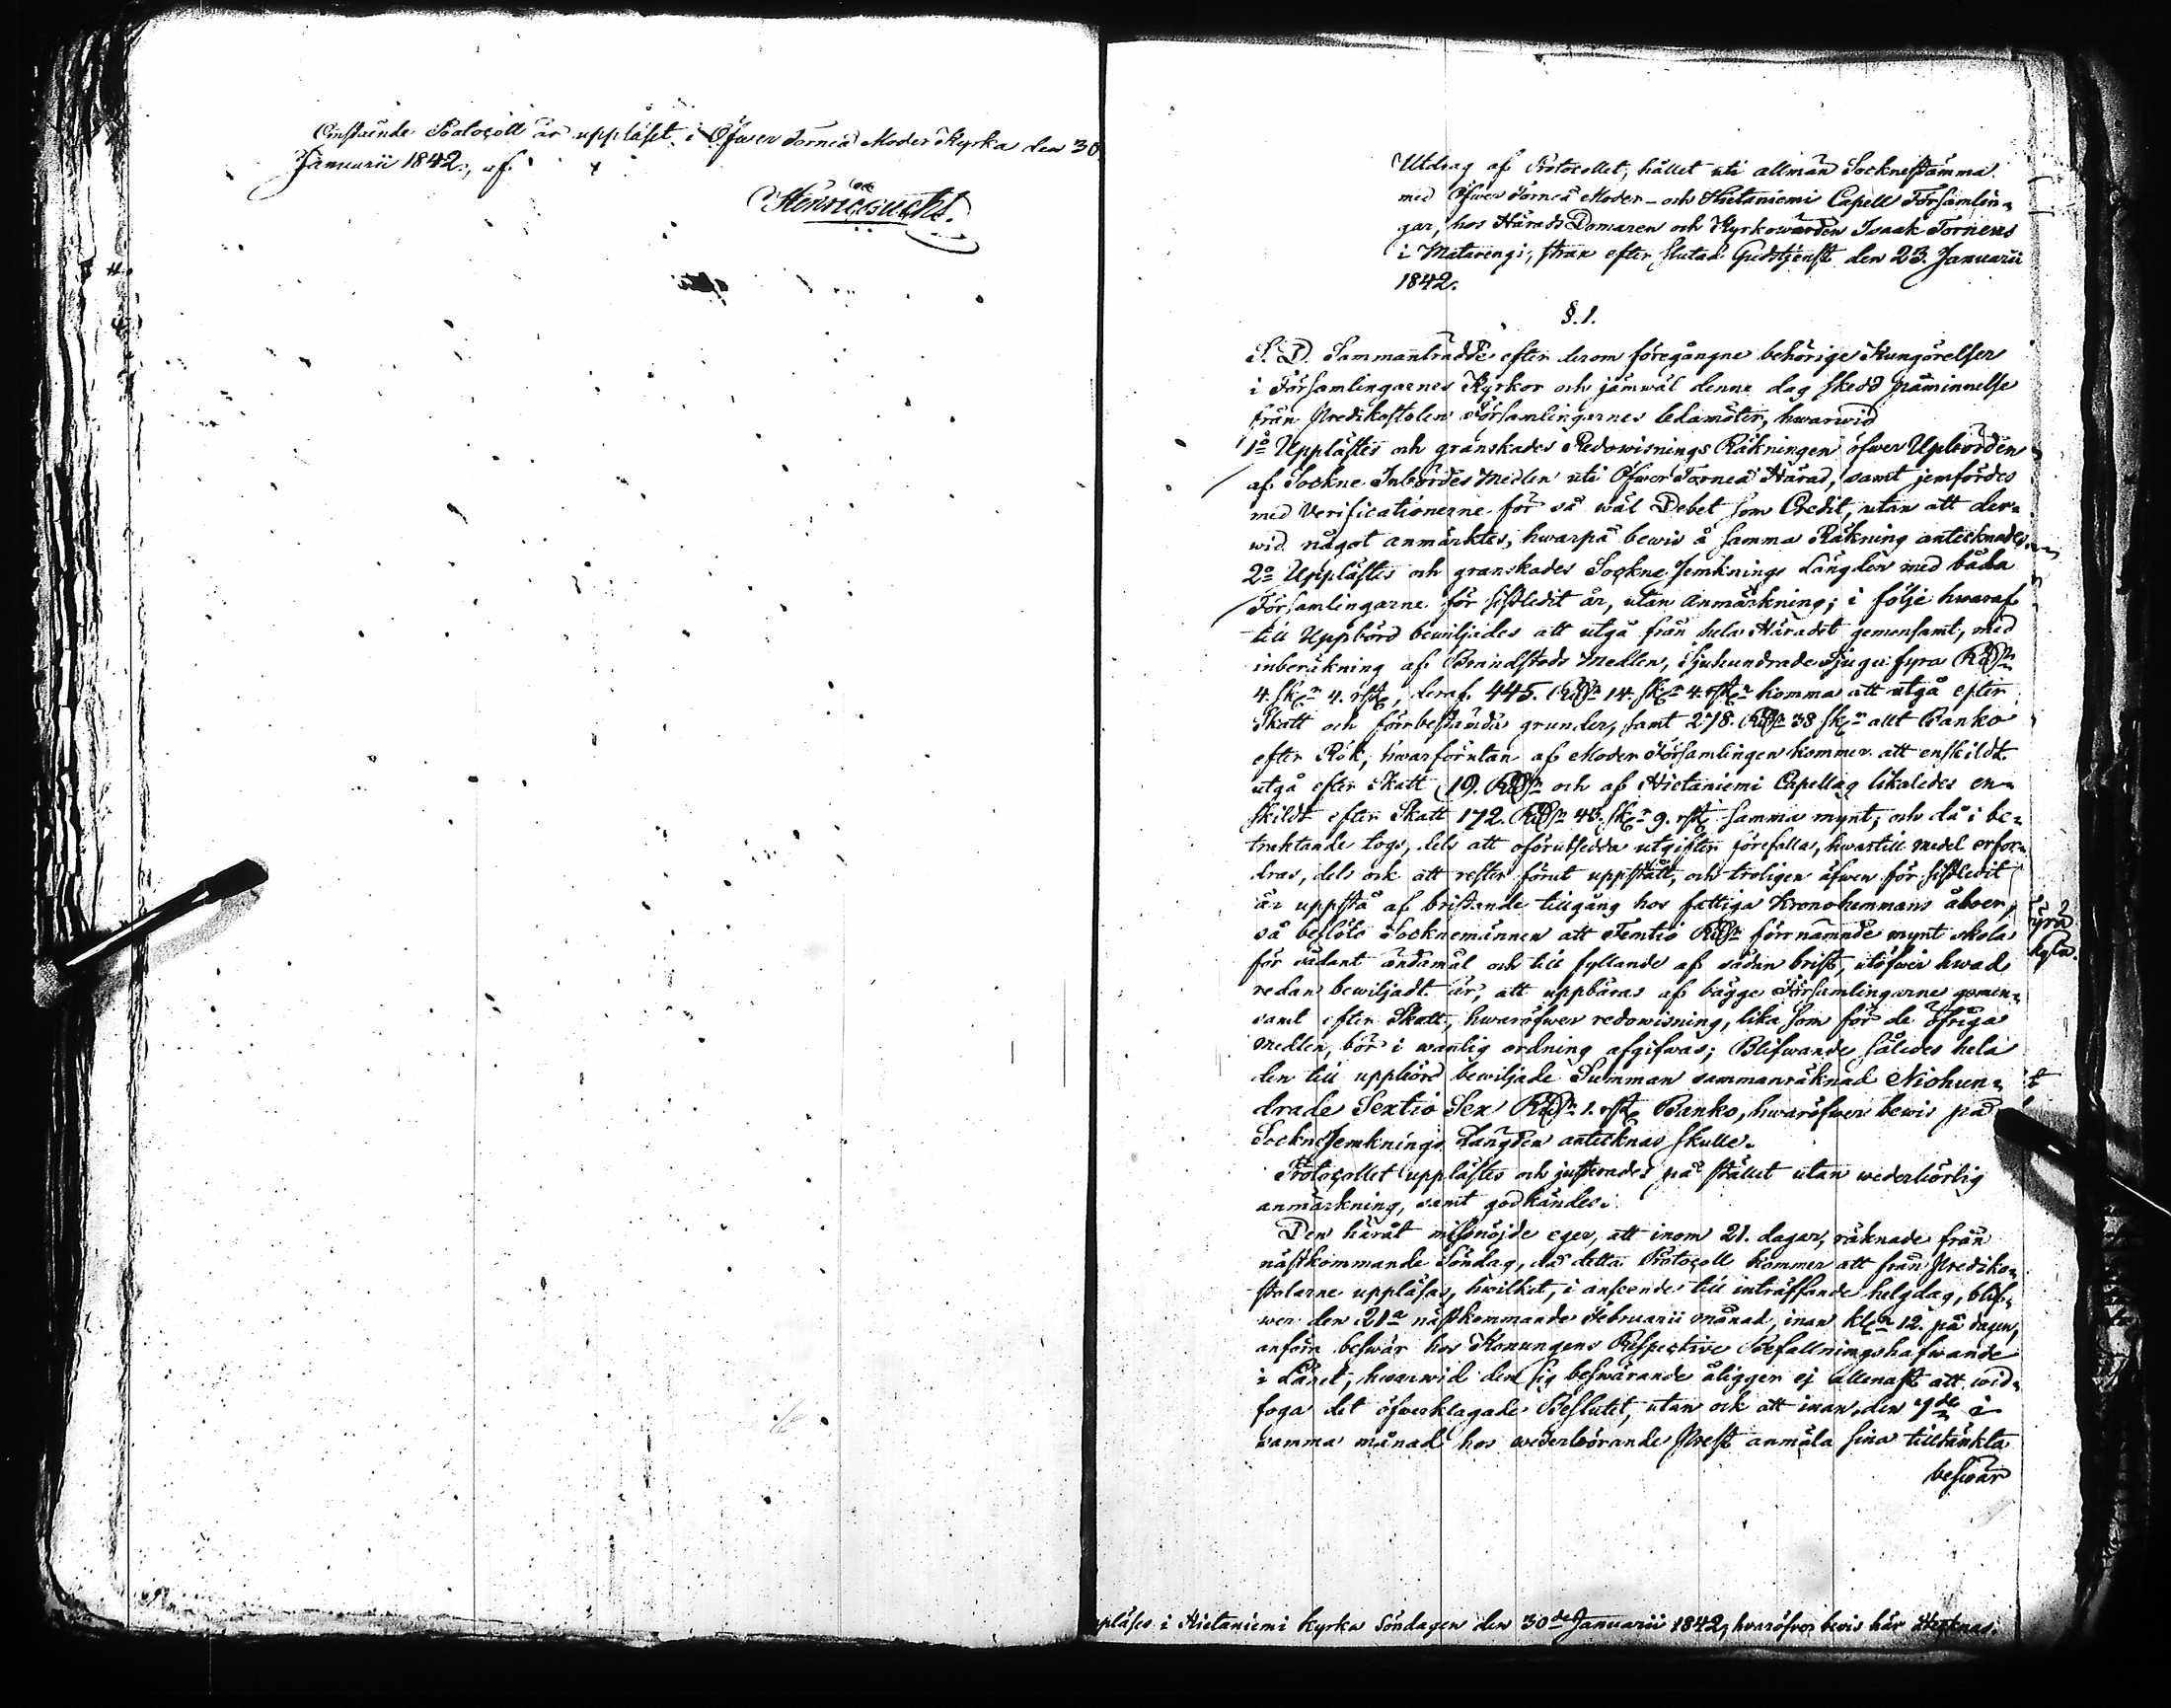 Omstående Protocoll är uppläset i Öfwer Torneå Moder Kyrka den 30
Januarii 1842, af
Utdrag af Protocollet, hållet uti allmän Socknestämma
med Öfwer Torneå Moder- och Hietaniemi Capell Församlin-
gar, hos HäradsDomaren och Kyrkowärden Isaak Torneus
i Matarengi, strax efter slutad Gudstjenst den 23. Januarii
1842.
§. 1.
S. D. Sammanträdde efter derom föregångne behörige Kungörelser
i Församlingarnes Kyrkor och jämwäl denne dag skedd påminnelse
från Predikostolen Församlingarnes ledamöter, hwarwid
1o Upplästes och granskades Redowisnings Räkningen öfwer Upbörden
af Sockne Inbördes Medlen uti Öfwer Torneå Härad, samt jemfördes
med Verificationerne för så wäl Debet som Credit, utan att der-
wid något anmärktes, hwarpå bewis å samma Räkning antecknades.
2o Upplästes och granskades Sockne Jemknings Längden med båda
Församlingarne för sistledit år, utan anmärkning; i följe hwaraf
till Uppbörd bewiljades att utgå från hela Häradet gemensamt, med
inberäkning af Brandstods Medlen, Sjuhundrade Tjugu fyra RDr
4. sk. 4. rst., deraf 445. RDr 14. sk. 4. rst. komma att utgå efter
Skatt och förrbestånds grunder, samt 278. RDr 38 sk. allt Banko
efter Rök, hwarförutan af Moder Församlingen kommer att enskildt
utgå efter Skatt 19. RDr och af Hietaniemi Capellag likaledes en-
skildt efter Skatt 172. RDr 45. sk. 9. rst. samma mynt; och då i be-
traktande togs, dels att oförutsedda utgifter förefalla, hwartill medel erfor-
dras, dels ock att rester förut uppstått, och troligen äfwen för sistledit
år uppstå af bristande tillgång hos fattiga Kronohemmans åboer,
så beslöto Socknemännen att Femtio RDr förrnämnde mynt skola
för sådant ändamål och till fyllande af sådan brist, utöfwer hwad
redan bewiljadt är, att uppbäras af bägge Församlingarne gemen-
samt efter Skatt, hwaröfwer redowisning, lika som för de öfriga
medlen, bör i wanlig ordning afgifwas; Blifwande således hela
den till uppbörd bewiljade Summan sammanräknad Niohun-
drade Sextio Sex RDr 1. rst. Banko, hwaröfwer bewis på
SockneJemknings Längden antecknas skulle.
Protocollet upplästes och justerades på stället utan wederbörlig
anmärkning, samt godkändes.
Den häråt missnöjde eger, att inom 21. dagar, räknade från
nästkommande Söndag, då detta Protocoll kommer att från Prediko-
stolarne uppläsas, hwilket, i anseende till inträffande helgdag, blif-
wer den 21a nästkommande Februarii månad, inan kl. 12. på dagen,
anföra beswär hos Konungens Respective Befallningshafwande
i Länet, hwarwid den sig beswärande åligger ej allenast att wid-
foga det öfwerklagade Beslutet, utan ock att inan den 7de i
samma månad hos wederbörande Prest anmäla sina tilltänkta
beswär
pläses i Hietaniemi kyrka Söndagen den 30de Januarii 1842, hvaröfver bevis här